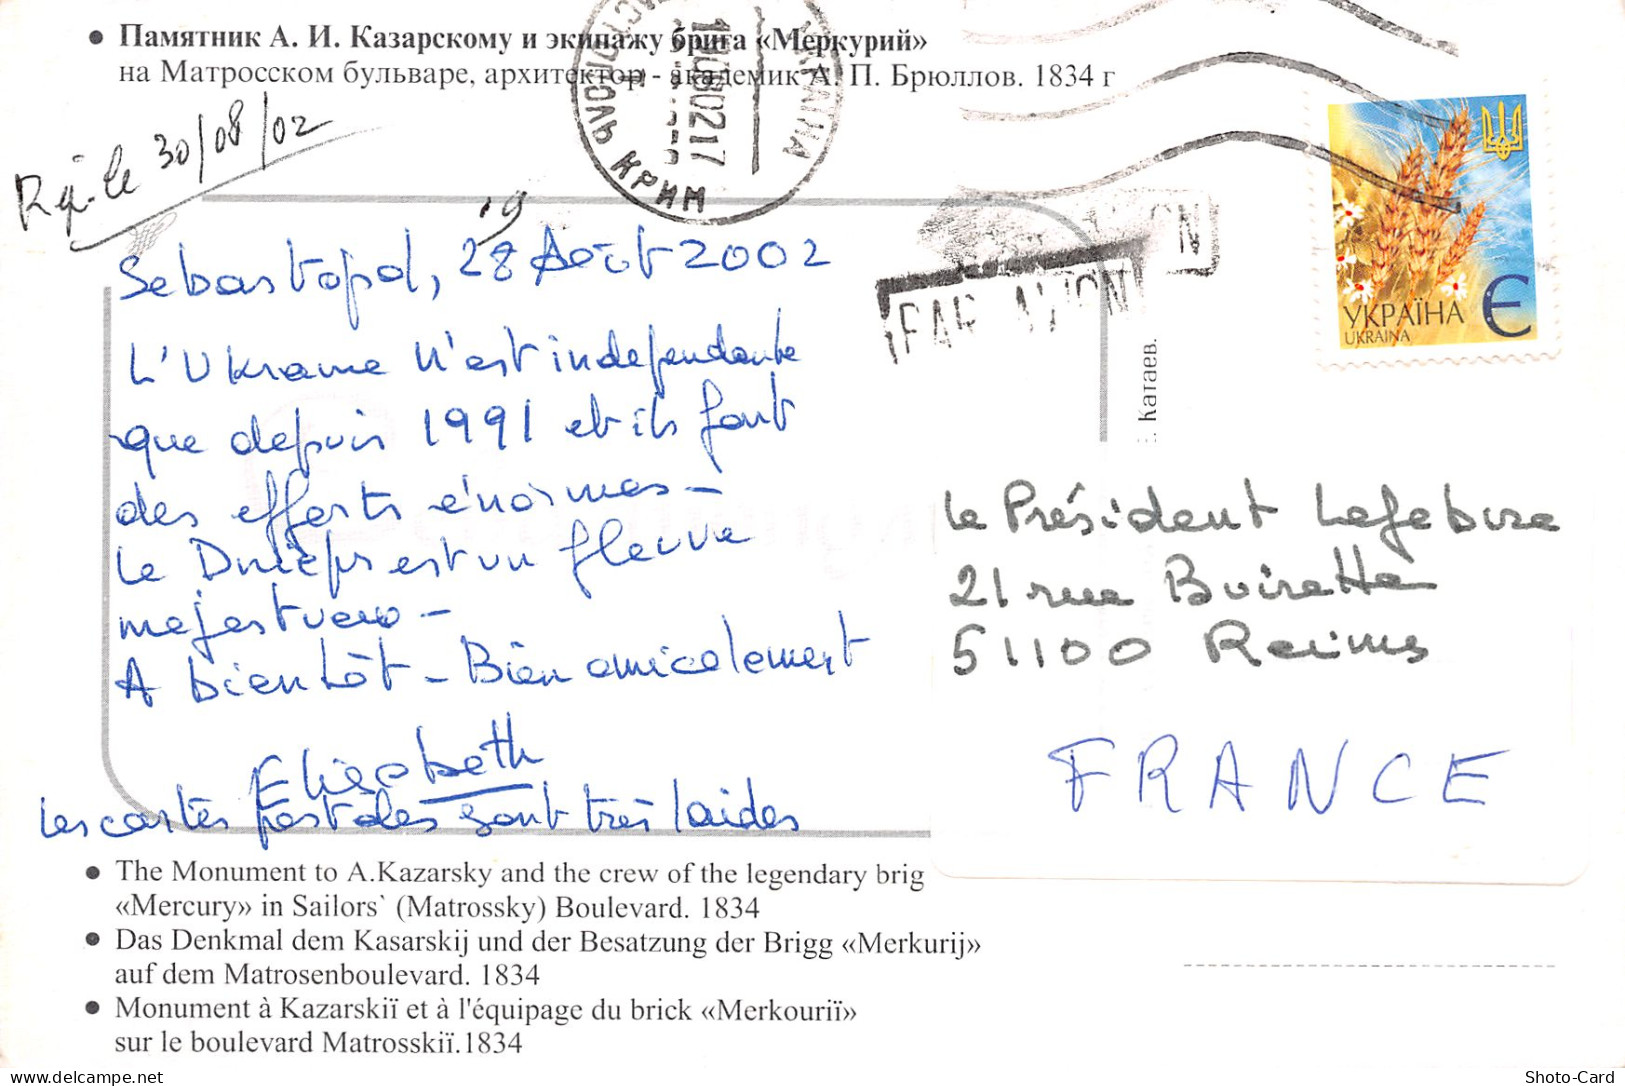 • Памятник А. И. Казарскому и экипажу брига «Меркурий»
на Матросском бульваре, архитектор - академик А. П. Брюллов. 1834 г
Rç. le 30/08/02
УКРАЇНА
КРИМ
19
Sebastopol, 28 Août 2002
L'Ukraine n'est indépendante
que depuis 1991 et ils font
des efforts énormes –
Le Dnièpr est un fleuve
majestueux –
A bientôt – Bien amicalement
Elisabeth
Les cartes postales sont très laides
PAR AVION
УКРАЇНА
UKRAINA
Є
Катаев.
Le Président Lefebvre
21 rue Buirette
51100 Reims
FRANCE
• The Monument to A.Kazarsky and the crew of the legendary brig
«Mercury» in Sailors` (Matrossky) Boulevard. 1834
• Das Denkmal dem Kasarskij und der Besatzung der Brigg «Merkurij»
auf dem Matrosenboulevard. 1834
• Monument à Kazarskiï et à l'équipage du brick «Merkouriï»
sur le boulevard Matrosskiï.1834
www.delcampe.net
Shoto-Card